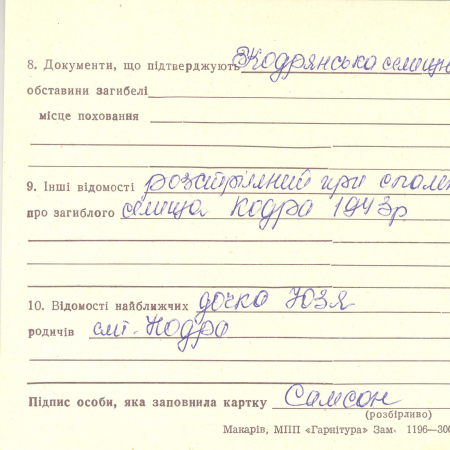 8. Документи, що підтверджують Кодрянська селищн
обставини загибелі
місце поховання
9. Інші відомості розстріляний при спален
про загиблого селища Кодра 1943р
10. Відомості найближчих дочка Юзя
родичів смт. Кодра
Підпис особи, яка заповнила картку Самсон
(розбірливо)
Макарів, МПП «Гарнітура» Зам. 1196—300